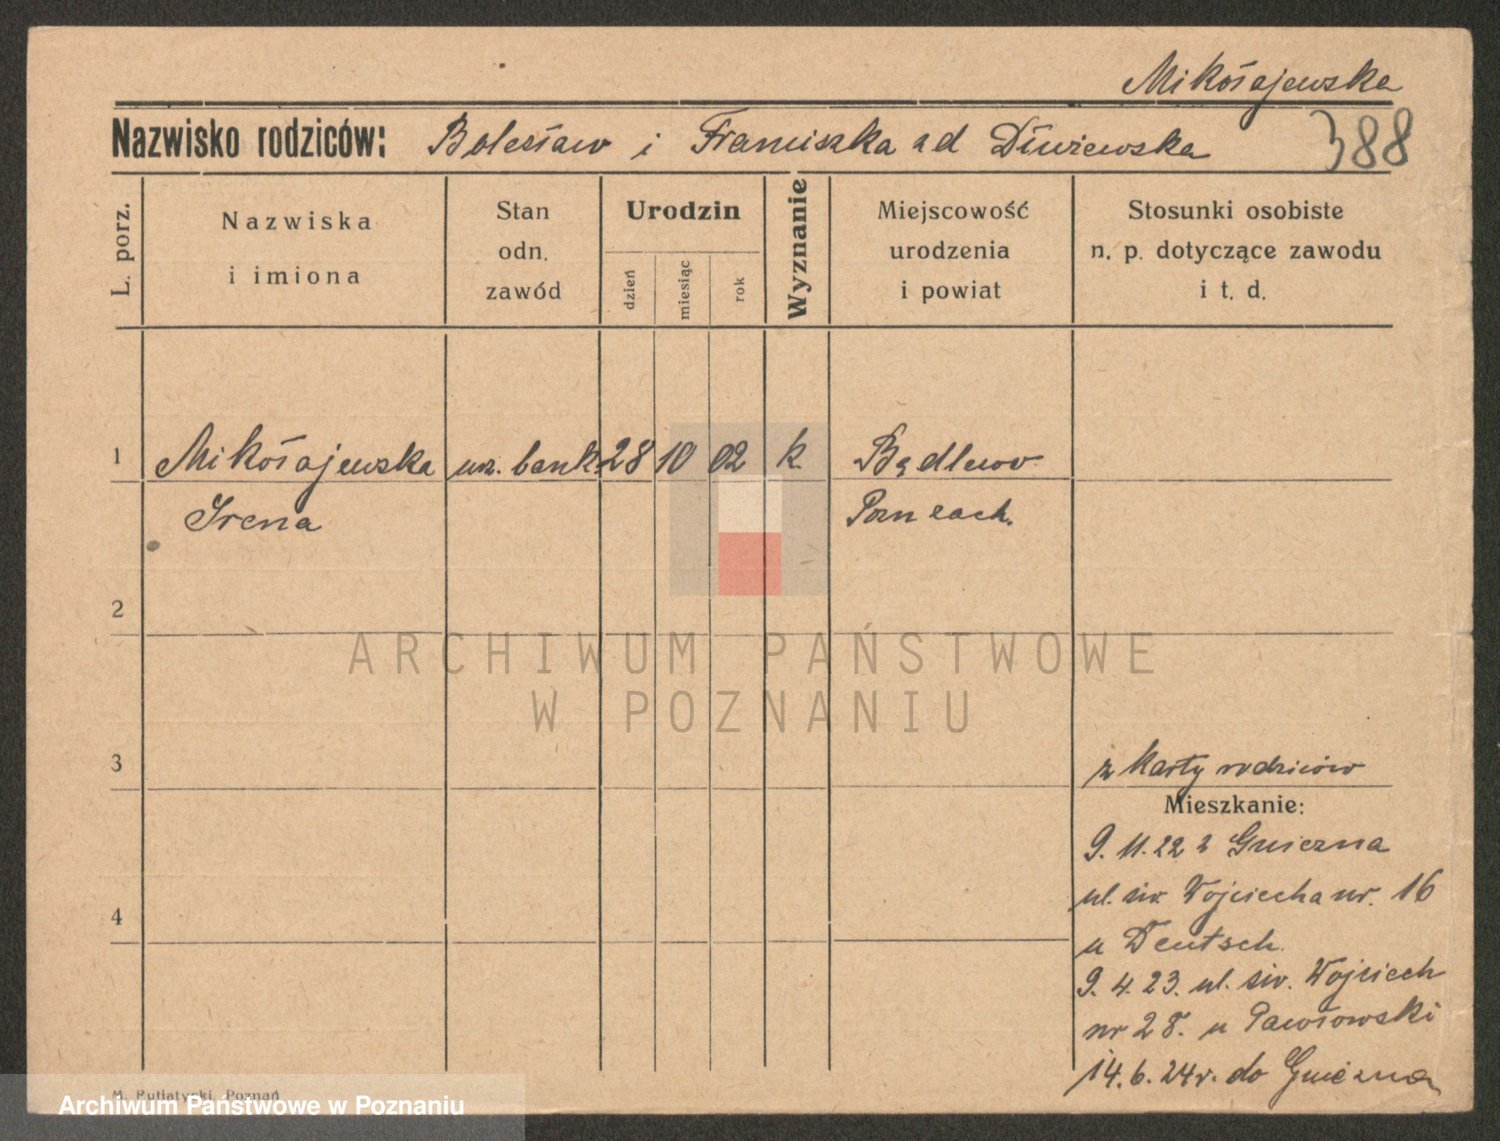 Mikołajewska
Nazwisko rodziców: Bolesław i Franciszka z d Dłużewska
388
L. porz.
Nazwiska
i imiona
Stan
odn.
zawód
Urodzin
dzień
miesiąc
rok
Wyznanie
Miejscowość
urodzenia
i powiat
Stosunki osobiste
n. p. dotyczące zawodu
i t. d.
1 Mikołajewska urz. bank. 28 10 02 k Będlewo
Irena Pozn zach.
2
ARCHIWUM PAŃSTWOWE
W POZNANIU
3
z karty rodziców
Mieszkanie:
9.11.22 z Gniezna
ul. św. Wojciecha nr. 16
u Deutsch.
4
9.4.23. ul. św. Wojciech
nr 28. u Pawłowski
14.6.24r. do Gniezna
M. Putiatycki, Poznań
Archiwum Państwowe w Poznaniu